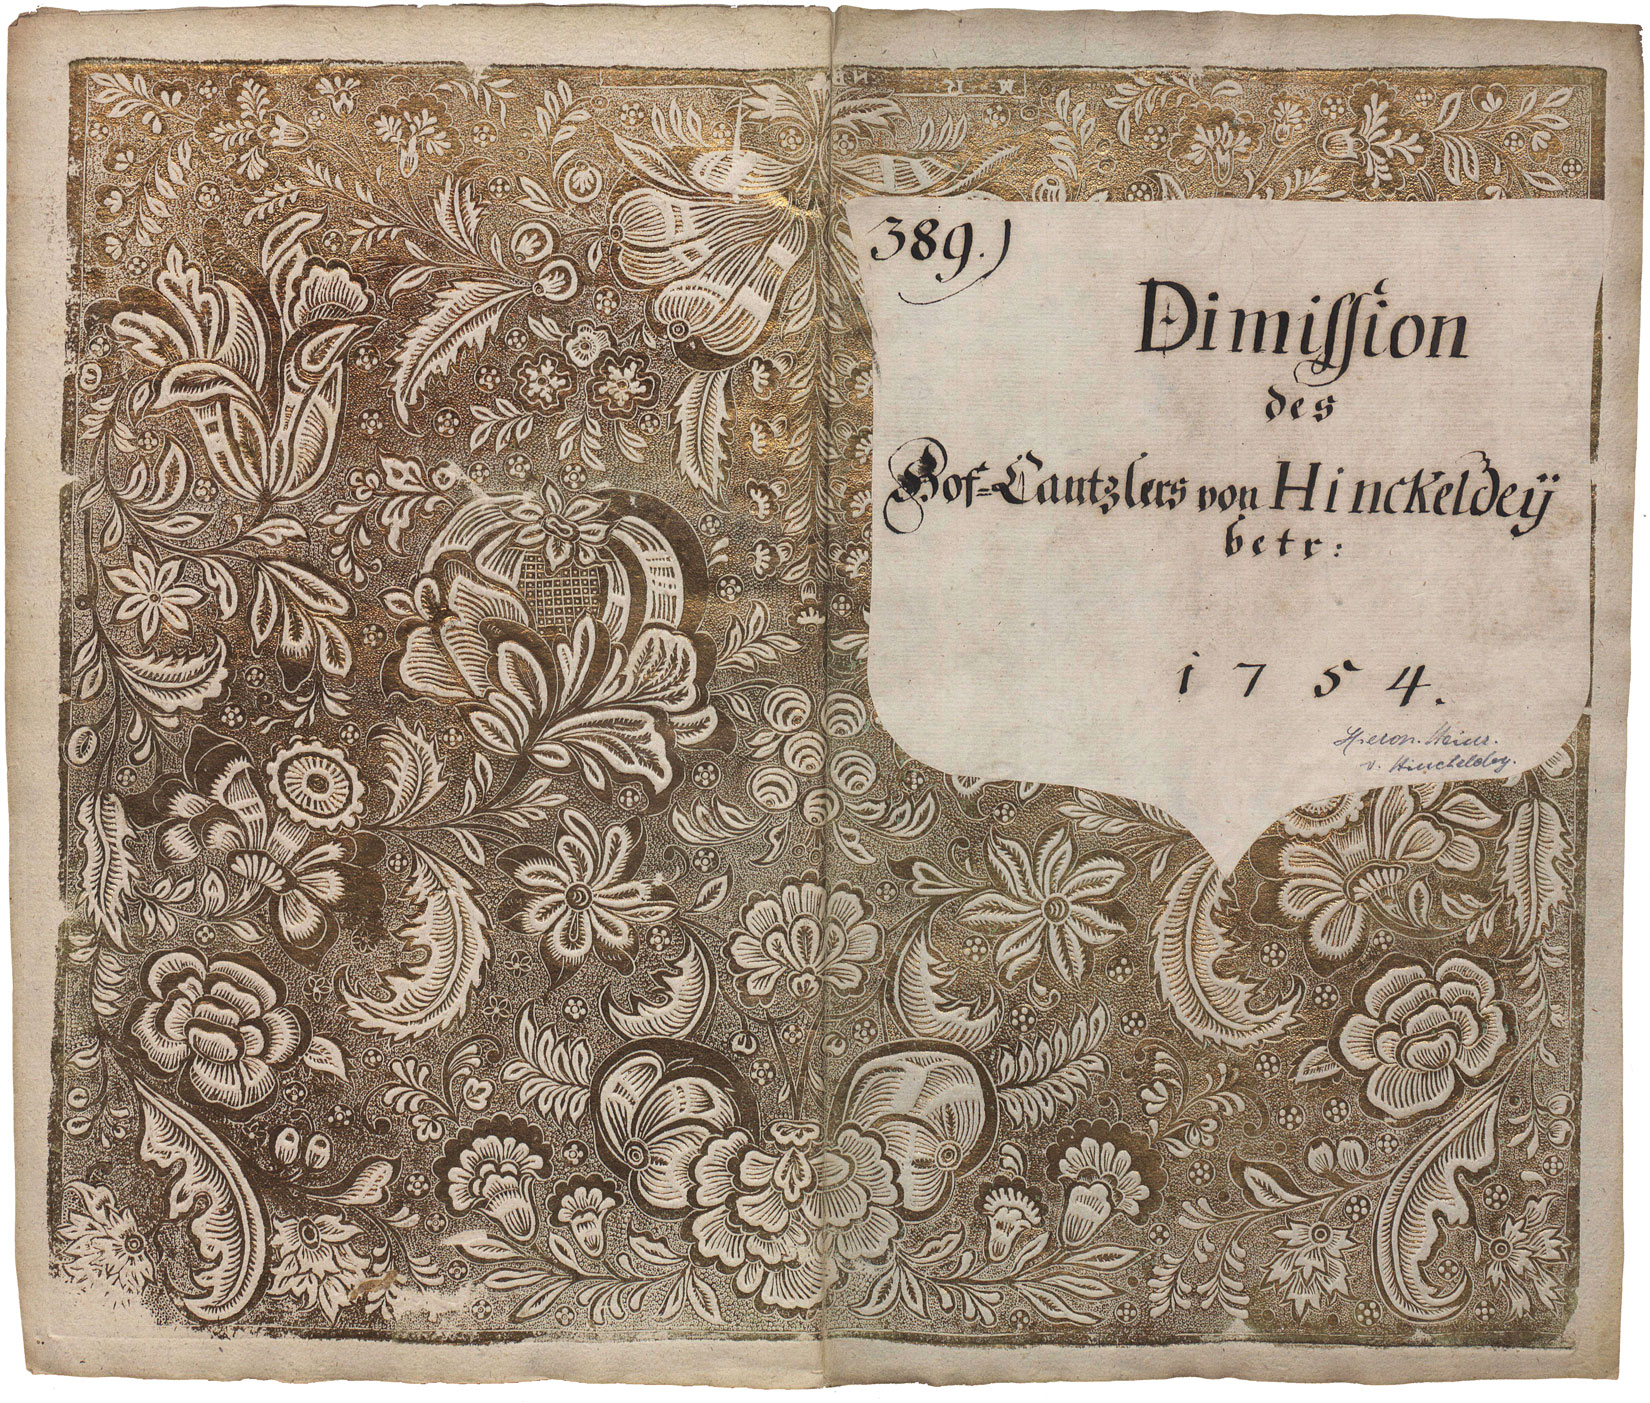 389.)
Dimiſſion
des
Hof=Cantzlers von Hinckeldeÿ
betr:
1754.
Hieron. Heinr.
v. Hinckeldey.